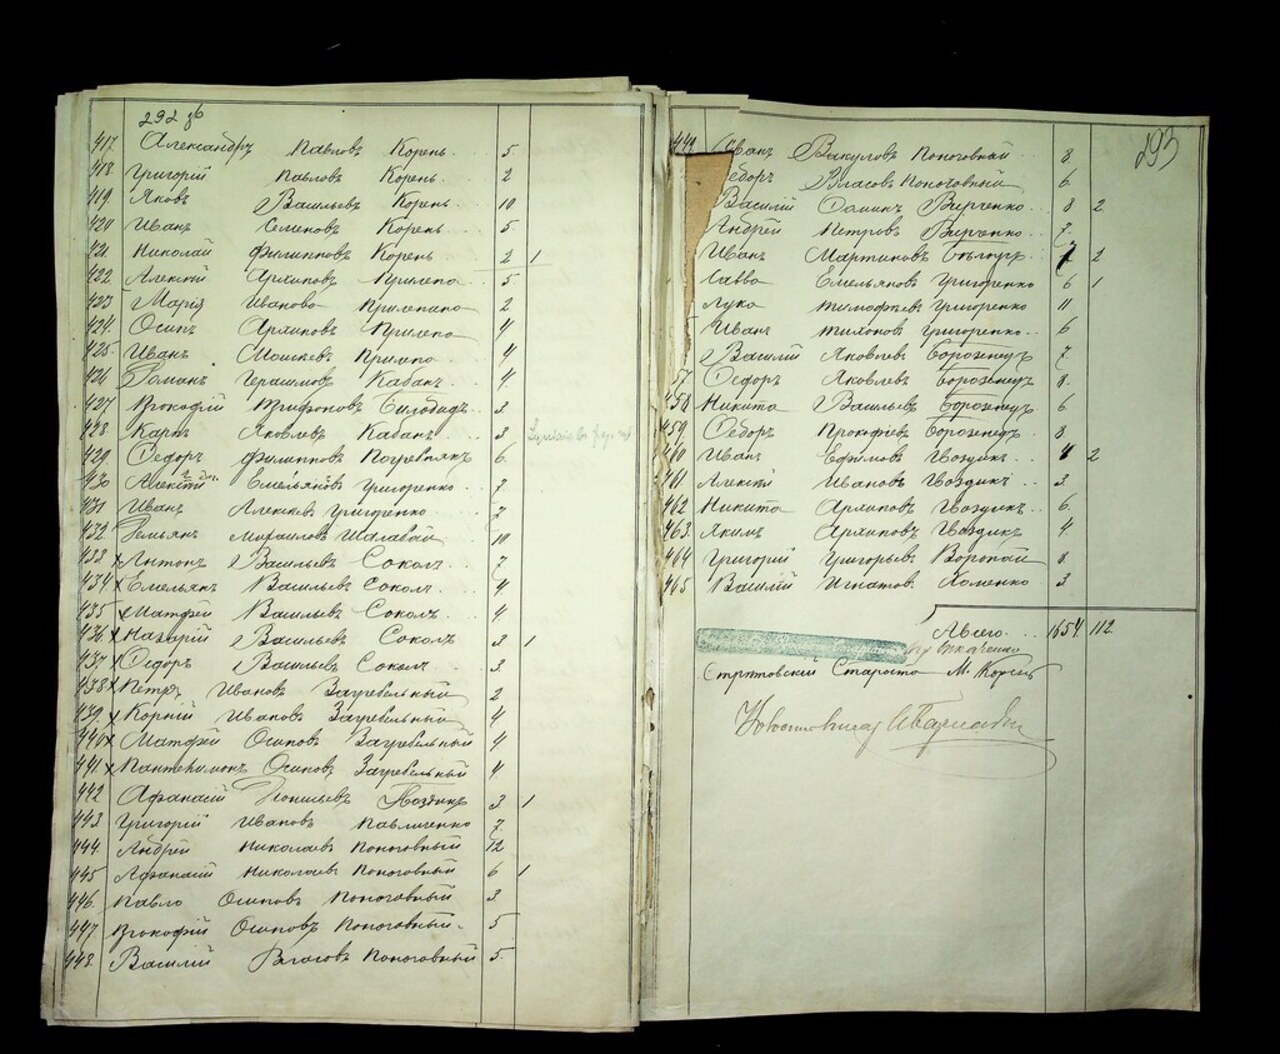 292 зв
417. Александръ Павловъ Корень. 5
418. Григорій Павловъ Корень. 2
419. Яковъ Васильевъ Корень. 10
420 Иванъ Семеновъ Корень. 5
421. Николай Филипповъ Корень 2 1
422. Алексій Архиповъ Прилепа 5
423 Марія Иванова Прилепина 2
424. Осипъ Архиповъ Прилепа 4
425. Иванъ Прилепа 4
426 Романъ Герасимовъ Кабанъ 4.
427 Прокофій Трифоновъ Билобидъ 3
428. Карпъ Яковлевъ Кабанъ 3
429. Федоръ Филипповъ Погребнякъ 6.
430 Алексій Емельяновъ Григоренко 7
431 Иванъ Алексеевъ Григоренко 7
432 Демьянъ Михаиловъ Шалавай 10
433 х Антонъ Васильевъ Соколъ 7
434 х Емельянъ Васильевъ Соколъ 4.
435 х Матфей Васильевъ Соколъ 4.
436. х Назарій Васильевъ Соколъ 3 1
437 х Федоръ Васильевъ Соколъ 3.
438 х Петръ Ивановъ Загребельный 2
439. х Корній Ивановъ Загребельный 4
440 х Матфей Осиповъ Загребельный 4.
441. х Пантелимонъ Осиповъ Загребельный 4
442 Афанасій 3 1
443 Григорій Ивановъ Павличенко 7
444. Андрей Николаевъ Поноговный 12
445 Афанасій Николаевъ Поноговный 6 1
446. Павло Осиповъ Поноговный 3
447. Прокофій Осиповъ Поноговный 5
448. Василій Власовъ Поноговный 5.
293
449. Иванъ Вакуловъ Поноговный 8
Федоръ Власовъ Поноговный 6.
Василій Вирченко 8 2
Андрей Петровъ Вирченко 7.
Иванъ Мартиновъ 2
Савва Емельяновъ Григоренко 6 1
Лука Тимофеевъ Григоренко 11
Иванъ Тихоновъ Григоренко 6
Василій Яковлевъ Борозенецъ 7.
57. Федоръ Яковлевъ Борозенецъ 8.
458 Никита Васильевъ Борозенецъ 6
459. Федоръ Прокофіевъ Борозенецъ 8.
460 Иванъ Ефимовъ Гвоздикъ 4 2
461. Алексій Ивановъ Гвоздикъ 3
462 Никита Архиповъ Гвоздикъ 6.
463. Якимъ Архиповъ Гвоздикъ 4.
464 Григорій Григорьевъ Воропай 8.
465 Василій Игнатовъ Хоменко 3
Всего 1654 112.
Староста М. Корень